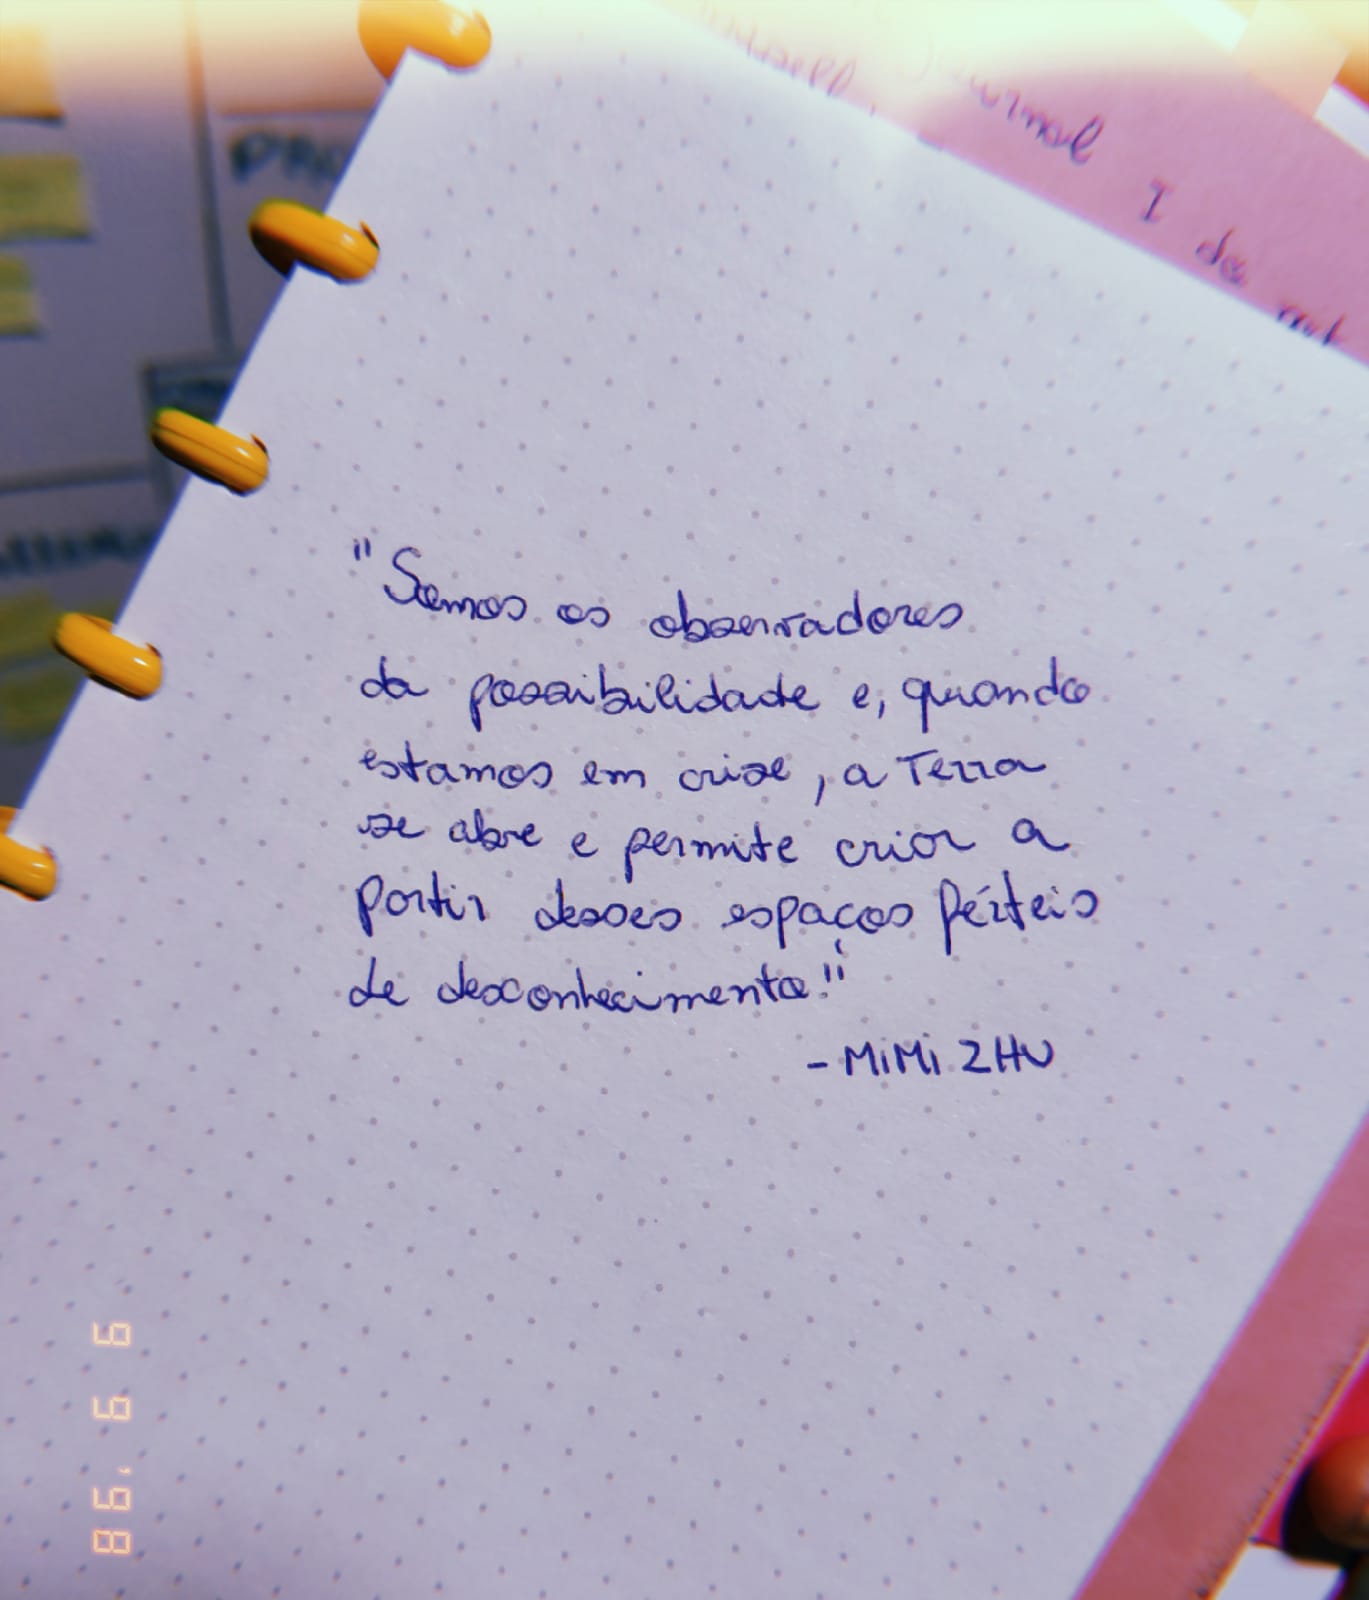 urnal
I do not
"Somos os observadores
da possibilidade e, quando
estamos em crise, a Terra
se abre e permite criar a
partir desses espaços férteis
de desconhecimento!"
- MiMi ZHU
'98 6 6